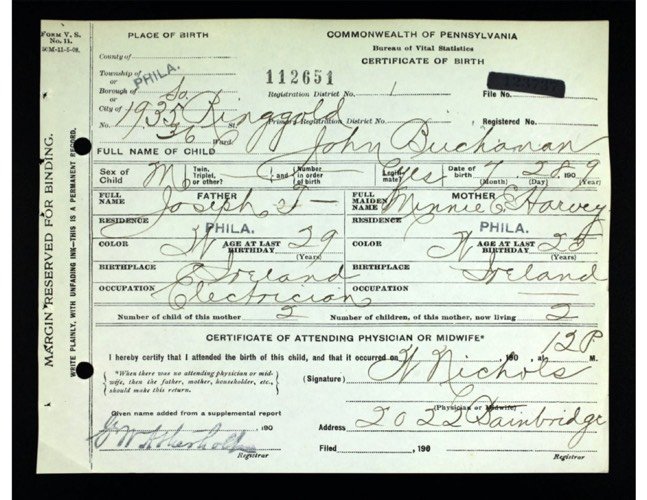 FORM V. S.
No. 11.
50M-11-5-08.
MARGIN RESERVED FOR BINDING.
WRITE PLAINLY, WITH UNFADING INK—THIS IS A PERMANENT RECORD.
PLACE OF BIRTH
COMMONWEALTH OF PENNSYLVANIA
Bureau of Vital Statistics
CERTIFICATE OF BIRTH
County of
Township of
or
PHILA.
Borough of
or
City of
112651
Registration District No. 1
File No.
Registered No.
No. 1935 So. Ringgold St.
Primary Registration District No.
36 Ward
FULL NAME OF CHILD John Buchanan
Sex of Child M
Twin, Triplet, or other? — and Number in order of birth —
Legitimate? Yes
Date of birth 7 28 1909
(Month) (Day) (Year)
FATHER
FULL NAME Joseph
MOTHER
FULL MAIDEN NAME Minnie E Harvey
RESIDENCE PHILA.
RESIDENCE PHILA.
COLOR W AGE AT LAST BIRTHDAY 29 (Years)
COLOR W AGE AT LAST BIRTHDAY 25 (Years)
BIRTHPLACE Ireland
BIRTHPLACE Ireland
OCCUPATION Electrician
OCCUPATION
Number of child of this mother 2
Number of children, of this mother, now living 2
CERTIFICATE OF ATTENDING PHYSICIAN OR MIDWIFE*
I hereby certify that I attended the birth of this child, and that it occurred on 190 , at 12 P M.
*When there was no attending physician or midwife, then the father, mother, householder, etc., should make this return.
(Signature) Nichols
(Physician or Midwife)
Given name added from a supplemental report
190
Address 2022 Bainbridge
Registrar
Filed , 190
Registrar